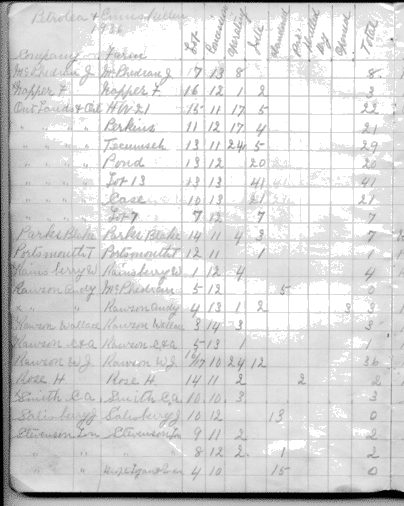 Petrolea & Enniskillen
1936
Company Farm Lot Concession Operating Idle Abandoned Drilled Dry Opened Total
McPhedran J McPhedran J 17 13 8 8
Napper F. Napper F. 16 12 1 2 3
Ont Lands & Oil HW 21 15 11 17 5 22
" " " Perkins 11 12 17 4 21
" " " Tecumseh 11 11 24 5 29
" " " Pond 13 12 20 20
" " " Lot 13 13 13 41 41
" " " Case 10 13 21 21
" " " Lot 7 7 12 7 7
Parks Blake Parks Blake 14 11 4 3 7
Portsmouth T Portsmouth T 12 11 1 1
Rainsberry W Rainsberry W 1 12 4 4
Rawson Andy McPhedran 5 12 5 0
" " Rawson Andy 4 13 1 2 3
Rawson Wallace Rawson Wallace 3 14 3 3
Rawson Rawson 5 13 1 1
Rawson W J. Rawson W J. 16/17 10 24 12 36
Rose H. Rose H. 14 11 2 2 2
Smith C A Smith C A 10 10 3 3
Salisbery J Salisbery J 10 12 13 0
Stevenson Stevenson 9 11 2 2
" " 8 12 2 1 2
" " 4 10 15 0